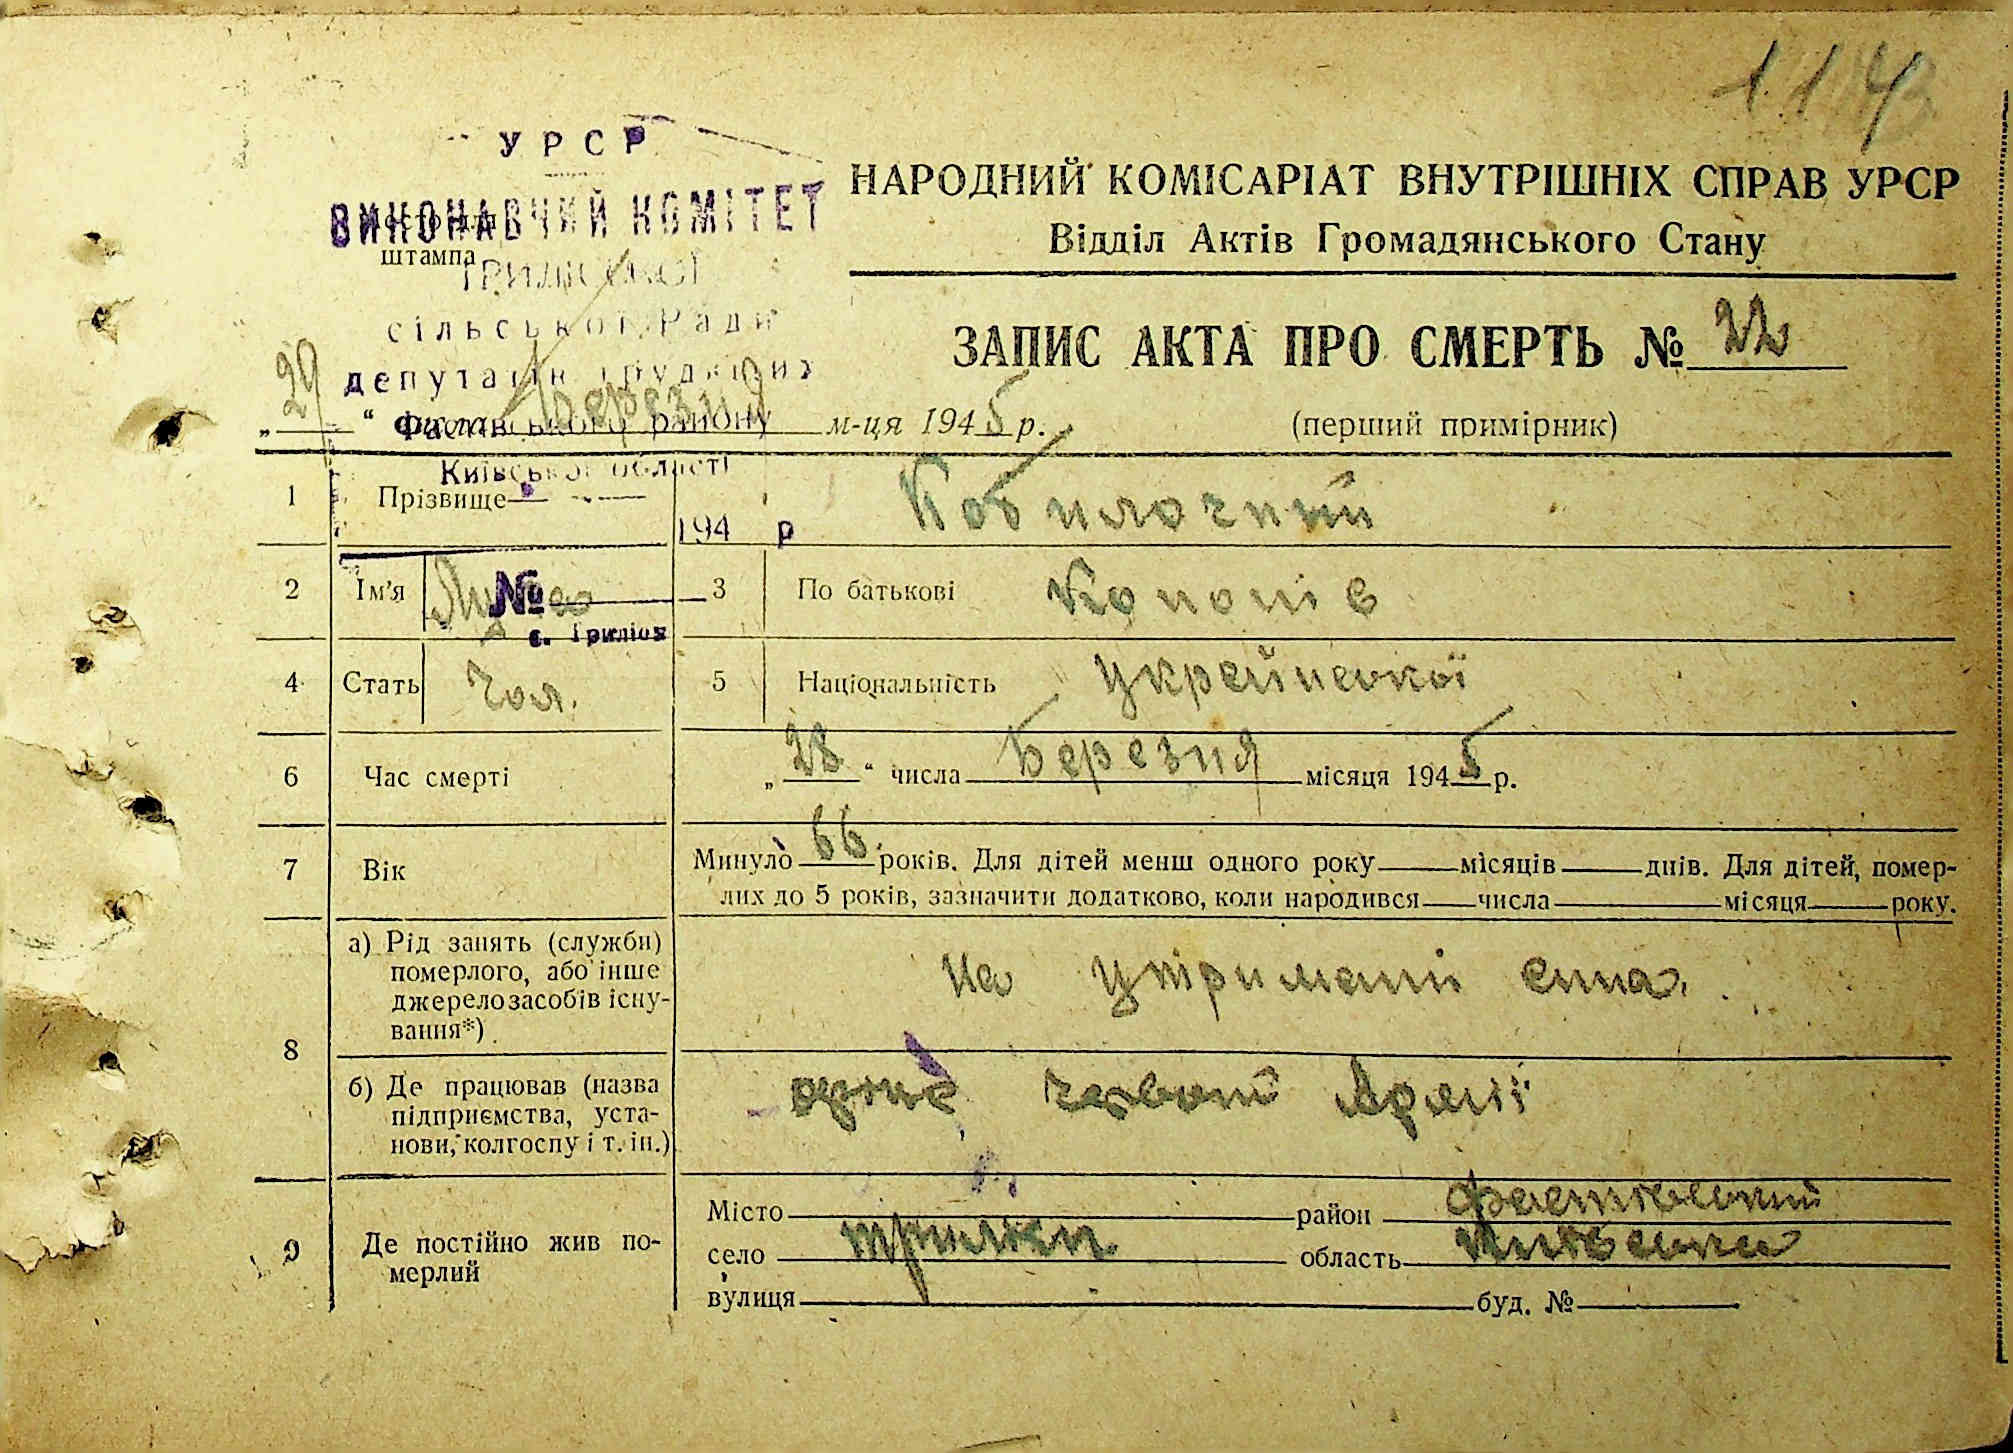 114
УРСР
ВИКОНАВЧИЙ КОМІТЕТ
штампа
сільської Ради
депутатів трудящих
Фастівського району
Київської області
194 р
№
с. Триліси
НАРОДНИЙ КОМІСАРІАТ ВНУТРІШНІХ СПРАВ УРСР
Відділ Актів Громадянського Стану
ЗАПИС АКТА ПРО СМЕРТЬ № 22
„29“ числа березня м-ця 1945 р.
(перший примірник)
1 Прізвище Кобилочний
2 Ім'я
3 По батькові Кононів
4 Стать Чол.
5 Національність Української
6 Час смерті „28“ числа Березня місяця 1945 р.
7 Вік Минуло 66 років. Для дітей менш одного року місяців днів. Для дітей, помер-
лих до 5 років, зазначити додатково, коли народився числа місяця року.
8 а) Рід занять (служби) померлого, або інше джерело засобів існу-вання*) На утримані сина.
б) Де працював (назва підприємства, уста-нови, колгоспу і т. ін.) Армії
9 Де постійно жив по-мерлий
Місто район Фастівський
село Триліси область Київська
вулиця буд. №